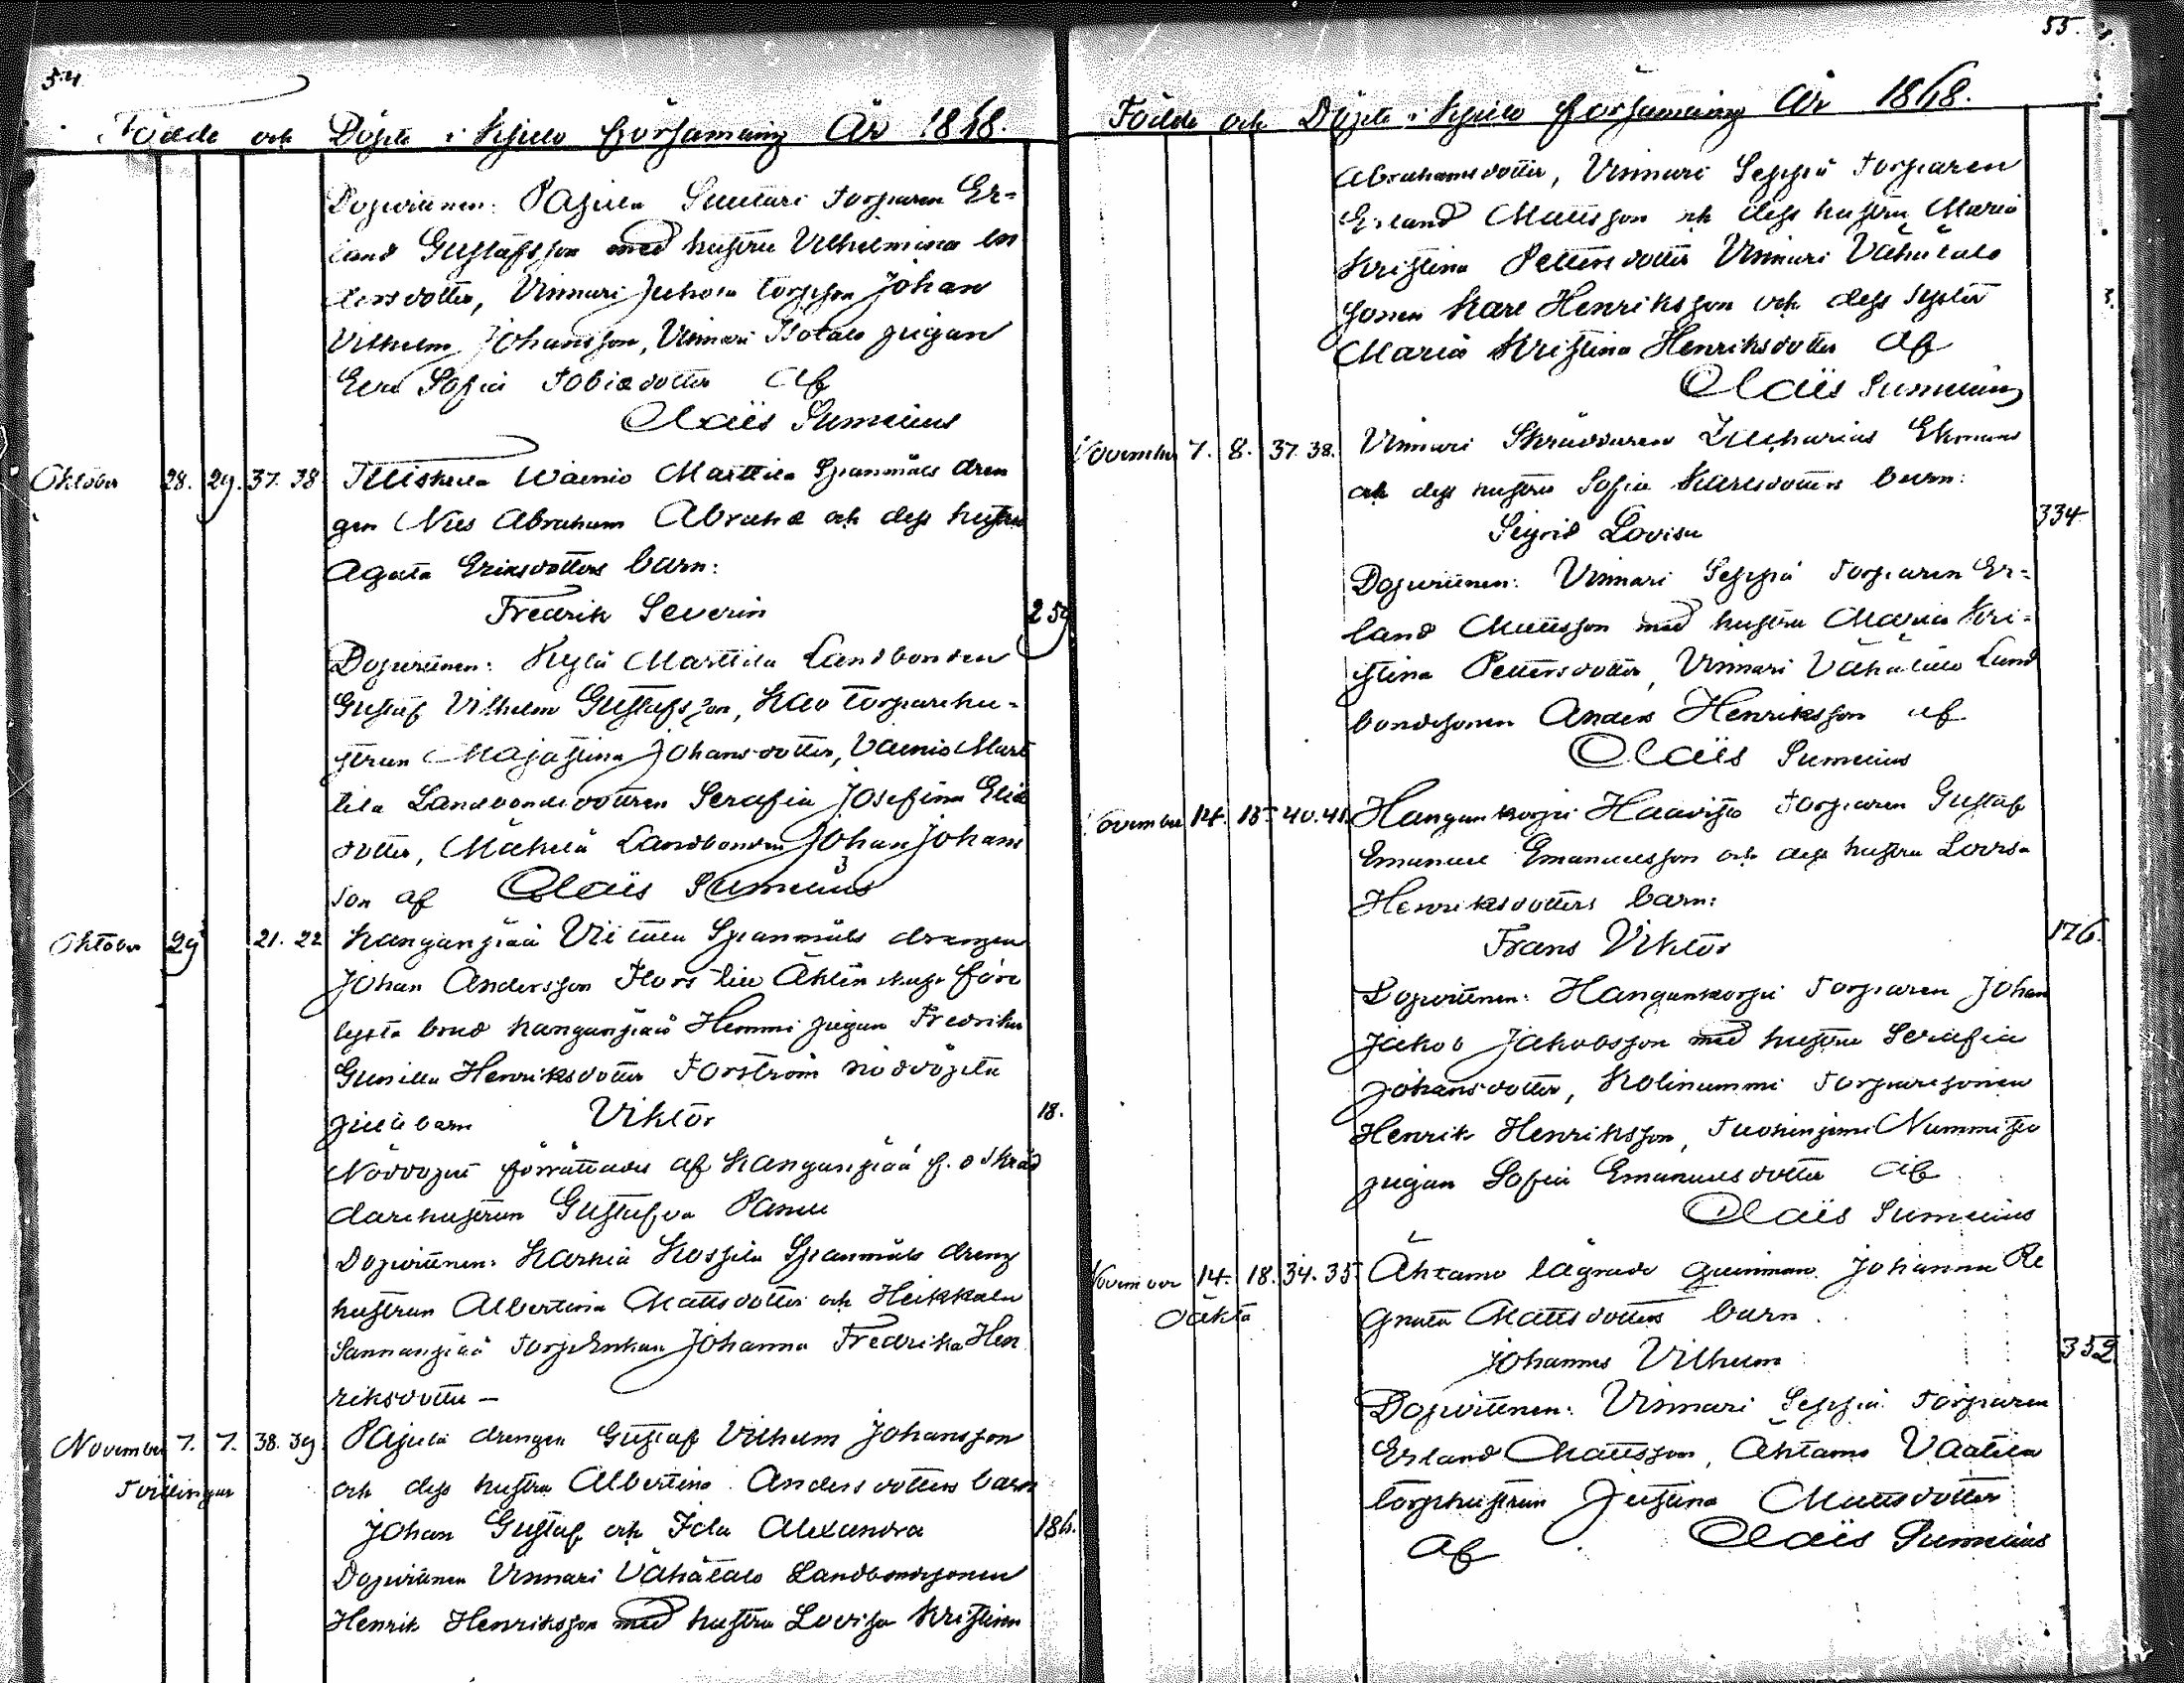 54
Födde och Döpte i Kjulo församling År 1868.
Dopvittnen: Pajula Suutari Torparen Er=
land Gustafsson med hustru Vilhelmina An
dersdotter, Vinnari Juhola torpson Johan
Vilhelm Johansson, Vinnari Isotalo pigan
Eva Sofia Tobiædotter af
Claës Sumelius
Oktober 28. 29. 37. 38 Wainio Marttila Spanmåls dren
gen Nils Abraham Abrahæ och dess hustru
Agata Eriksdotters barn:
Fredrik Severin 259
Dopvittnen: Kylä Marttila Landbonden
Gustaf Vilhelm Gustafsson, torparehu=
strun Majastina Johansdotter, Vainio Mart
tila Landbondedottren Serafia Josefina Eliæ
dotter, Mäkelä Landbonden Johan Johans
son af Claës Sumelius
Oktober 29 21. 22 Kanganpää Spanmåls drengen
Johan Andersson Flors till Äktenskap före
lysta brud Kanganpää Hemmi pigan Fredrika
Gunilla Henriksdotter Forström nöddöpta
piltebarn Viktor 18.
Nöddopet förrättades af Kanganpää f. d Skräd
darehustrun Gustafva
Dopvittnen: Karhia Kossila Spanmåls dreng
hustrun Albertina Mattsdotter och Heikkala
Sannanpää Torp Enkan Johanna Fredrika Hen
riksdotter —
November 7. 7. 38. 39 Pajula drengen Gustaf Vilhelm Johansson
Tvillingar och dess hustru Albertina Andersdotters barn
Johan Gustaf och Ida Alexandra 186.
Dopvittnen Vinnari Vähätalo Landbondesonen
Henrik Henriksson med hustru Lovisa Kristina
55.
Födde och Döpte i Kjulo församling År 1868.
Abrahamsdotter, Vinnari Seppä Torparen
Erland Mattsson och dess hustru Maria
Kristina Pettersdotter Vinnari Vähätalo
sonen Karl Henriksson och dess syster
Maria Kristina Henriksdotter af
Claës Sumelius
November 7. 8. 37. 38. Vinnari Skräddaren Zacharias Ekmans
och dess hustru Sofia Karlsdotters barn:
Sigrid Lovisa 334
Dopvittnen: Vinnari Seppä Torparen Er=
land Mattsson med hustru Maria Kri=
stina Pettersdotter, Vinnari Vähätalo Land
bondesonen Anders Henriksson af
Claës Sumelius
November 14. 15 40. 41. Hangankorpi Haavisto Torparen Gustaf
Emanuel Emanuelsson och dess hustru Lovisa
Henriksdotters barn:
Frans Viktor 176.
Dopvittnen: Hangankorpi Torparen Johan
Jakob Jakobsson med hustru Serafia
Johansdotter, Kolinummi Torparesonen
Henrik Henriksson, Nummisto
pigan Sofia Emanuelsdotter af
Claës Sumelius
November 14. 18. 34. 35 Ähtamo lägrade qvinnan Johanna Re
Oäkta gnata Mattsdotters barn
Johannes Vilhelm 352
Dopvittnen: Vinnari Seppä Torparen
Erland Mattsson, Ähtamo Vaatila
torphustrun Justina Mattsdotter
af Claës Sumelius